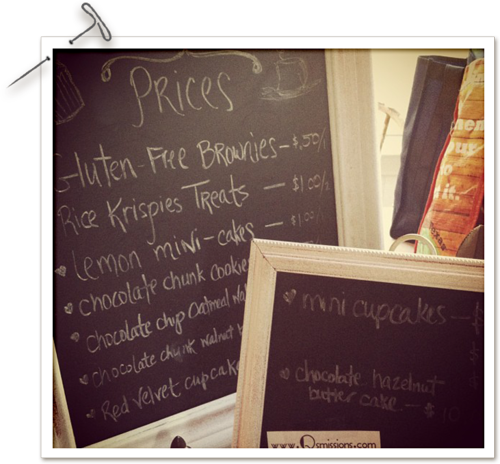 Prices
Gluten-Free Brownies - $.50/
Rice Krispies Treats - $1.00/
lemon mini-cakes - $1.00/
chocolate chunk cookie
chocolate chip oatmeal
chocolate chunk walnut
Red velvet cupcake
mini cupcakes -
chocolate hazelnut
butter cake - $10
www.Osmissions.com